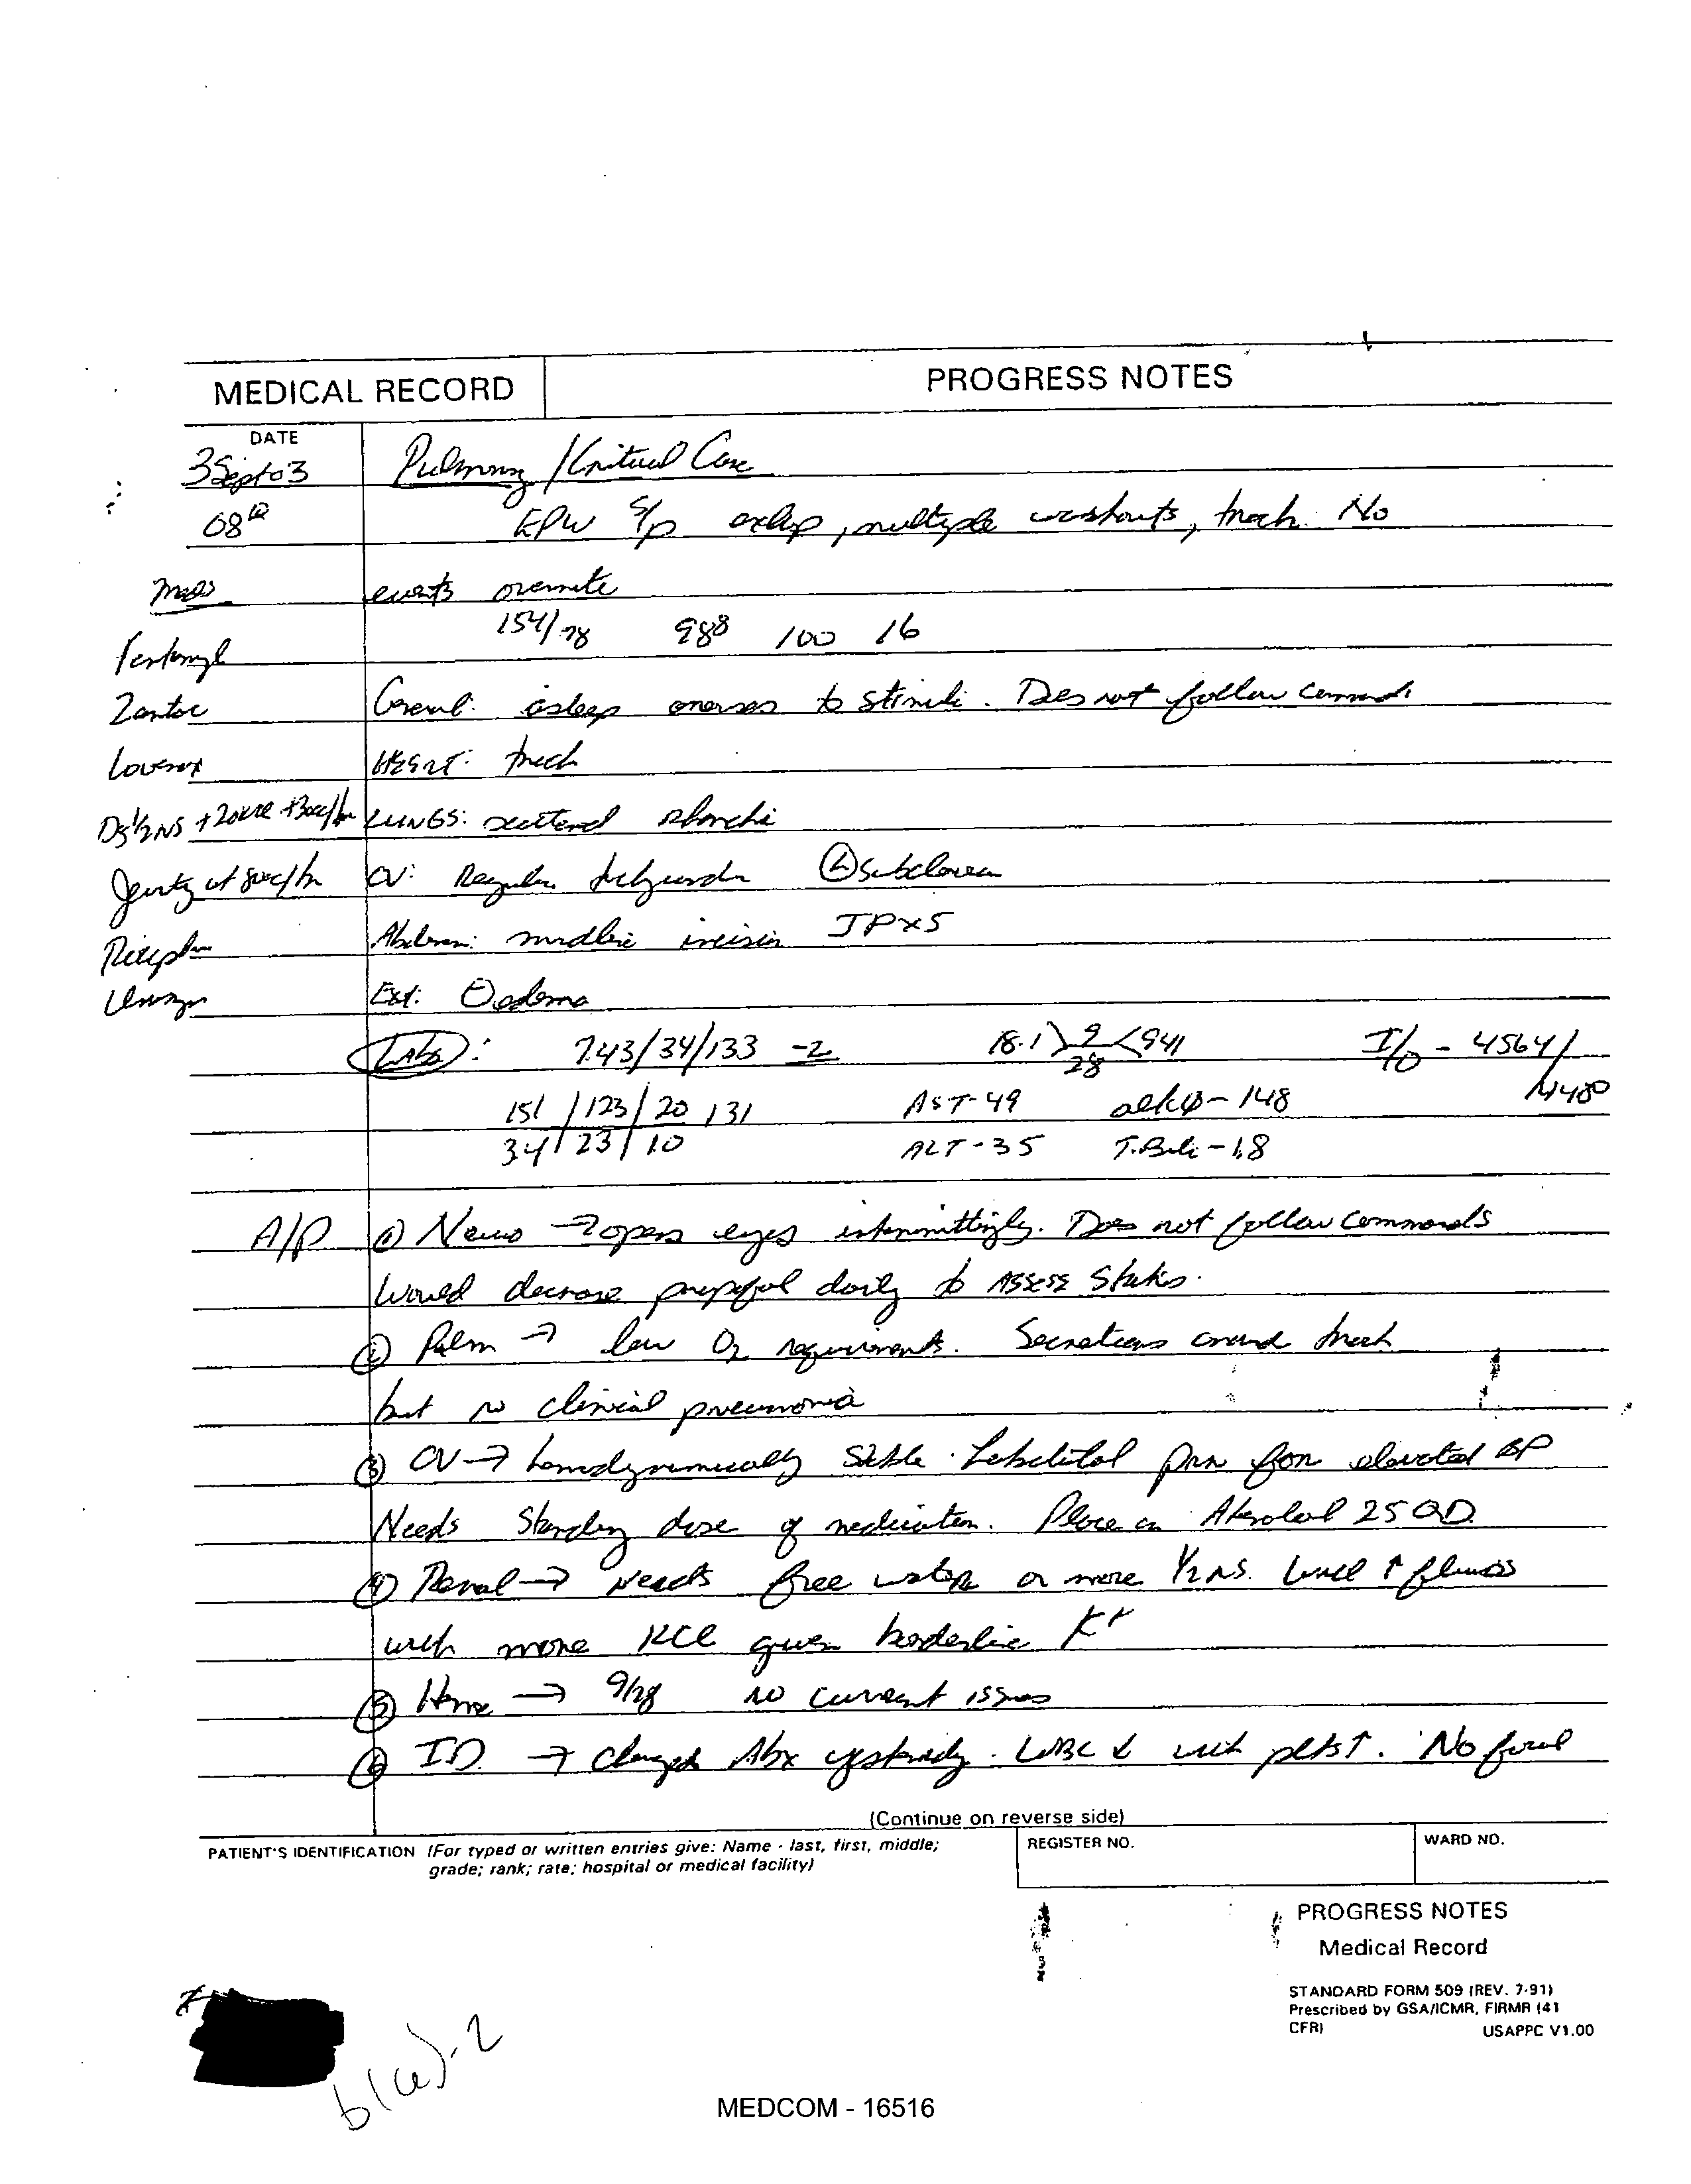 MEDICAL RECORD
PROGRESS NOTES
DATE
3Sept03
Pulmonary / Critical Care
08
EPW s/p exlap, multiple washouts, trach. No
Meds
events overnite
154/78 98⁸ 100 16
Fentanyl
Zantac
General: asleep arouses to stimuli. Does not follow commands
Lovenox
HEENT: trach
D5 1/2NS +20KCl
LUNGS: scattered rhonchi
Jevity at 80cc/hr
CV: Regular tachycardia Ⓛ subclavian
Abdomen: midline incision JPx5
Unasyn
Ext: edema
Labs: 7.43/34/133 -2 18.1 > 9 / 28 < 941 I/O - 4564/
4480
151 / 123 / 20 / 131 AST-49 alkφ-148
3.4 / 23 / 1.0 ALT-35 T.Bili-1.8
A/P ① Neuro → opens eyes intermittingly. Does not follow commands
Would decrease propofol daily to Assess Status.
② Pulm → low O2 requirements. Secretions around trach
but no clinical pneumonia
③ CV → hemodynamically stable. Labetalol prn for elevated BP
Needs standing dose of medication. Place on Atenolol 25 QD
④ Renal → Needs free water or more 1/2 NS. ↑ fluids
with more KCl given borderline K+
⑤ Heme → 9/28 no current issues
⑥ ID → Changed Abx yesterday. WBC ↓ with plts ↑. No
(Continue on reverse side)
PATIENT'S IDENTIFICATION (For typed or written entries give: Name - last, first, middle;
grade; rank; rate; hospital or medical facility)
REGISTER NO.
WARD NO.
PROGRESS NOTES
Medical Record
STANDARD FORM 509 (REV. 7-91)
Prescribed by GSA/ICMR, FIRMR (41
CFR)
USAPPC V1.00
b(6)-2
MEDCOM - 16516